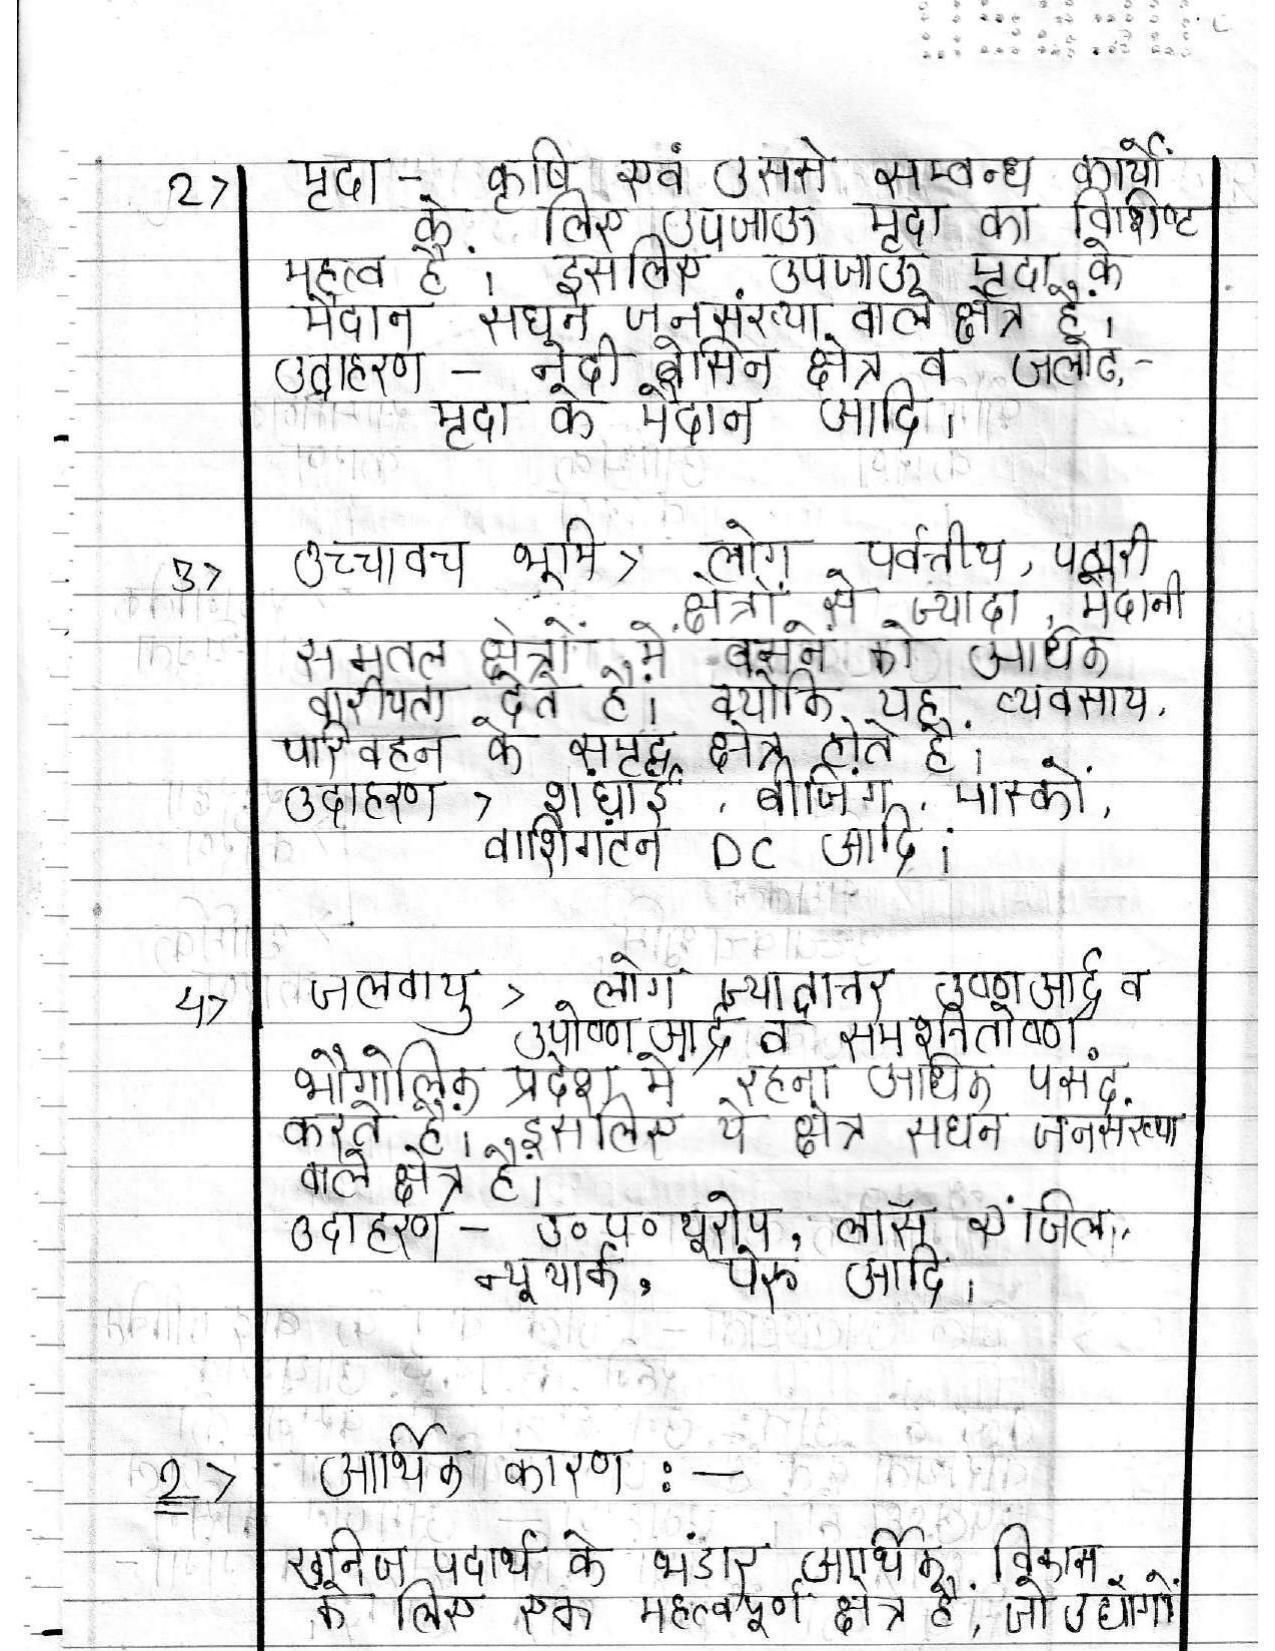 2> मृदा - कृषि एवं उससे सम्बन्ध कार्यों
के लिए उपजाऊ मृदा का विशिष्ट
महत्व है । इसलिए उपजाऊ मृदा के
मैदान सघन जनसंख्या वाले क्षेत्र है ।
उदाहरण - नदी बेसिन क्षेत्र व जलोढ़ -
मृदा के मैदान आदि ।
3> उच्चावच भूमि > लोग पर्वत्तीय, पठारी
क्षेत्रों से ज्यादा, मैदानी
समतल क्षेत्रों में बसने को अधिक
वरीयता देते है । क्योंकि यह व्यवसाय,
परिवहन के समृद्ध क्षेत्र होते है ।
उदाहरण > शंघाई, बीजिंग, मास्को,
वाशिंगटन DC आदि ।
4> जलवायु > लोग ज्यादात्तर उष्ण आर्द्र व
उपोष्ण आर्द्र व समशीतोष्ण
भौगोलिक प्रदेश में रहना अधिक पसंद
करते है । इसलिए ये क्षेत्र सघन जनसंख्या
वाले क्षेत्र है ।
उदाहरण - उ० प० यूरोप, लॉस एंजिल,
न्यूयार्क, पेरू आदि ।
2> आर्थिक कारण : -
खनिज पदार्थ के भंडार आर्थिक विकास
के लिए एक महत्वपूर्ण क्षेत्र है, जो उद्योगों